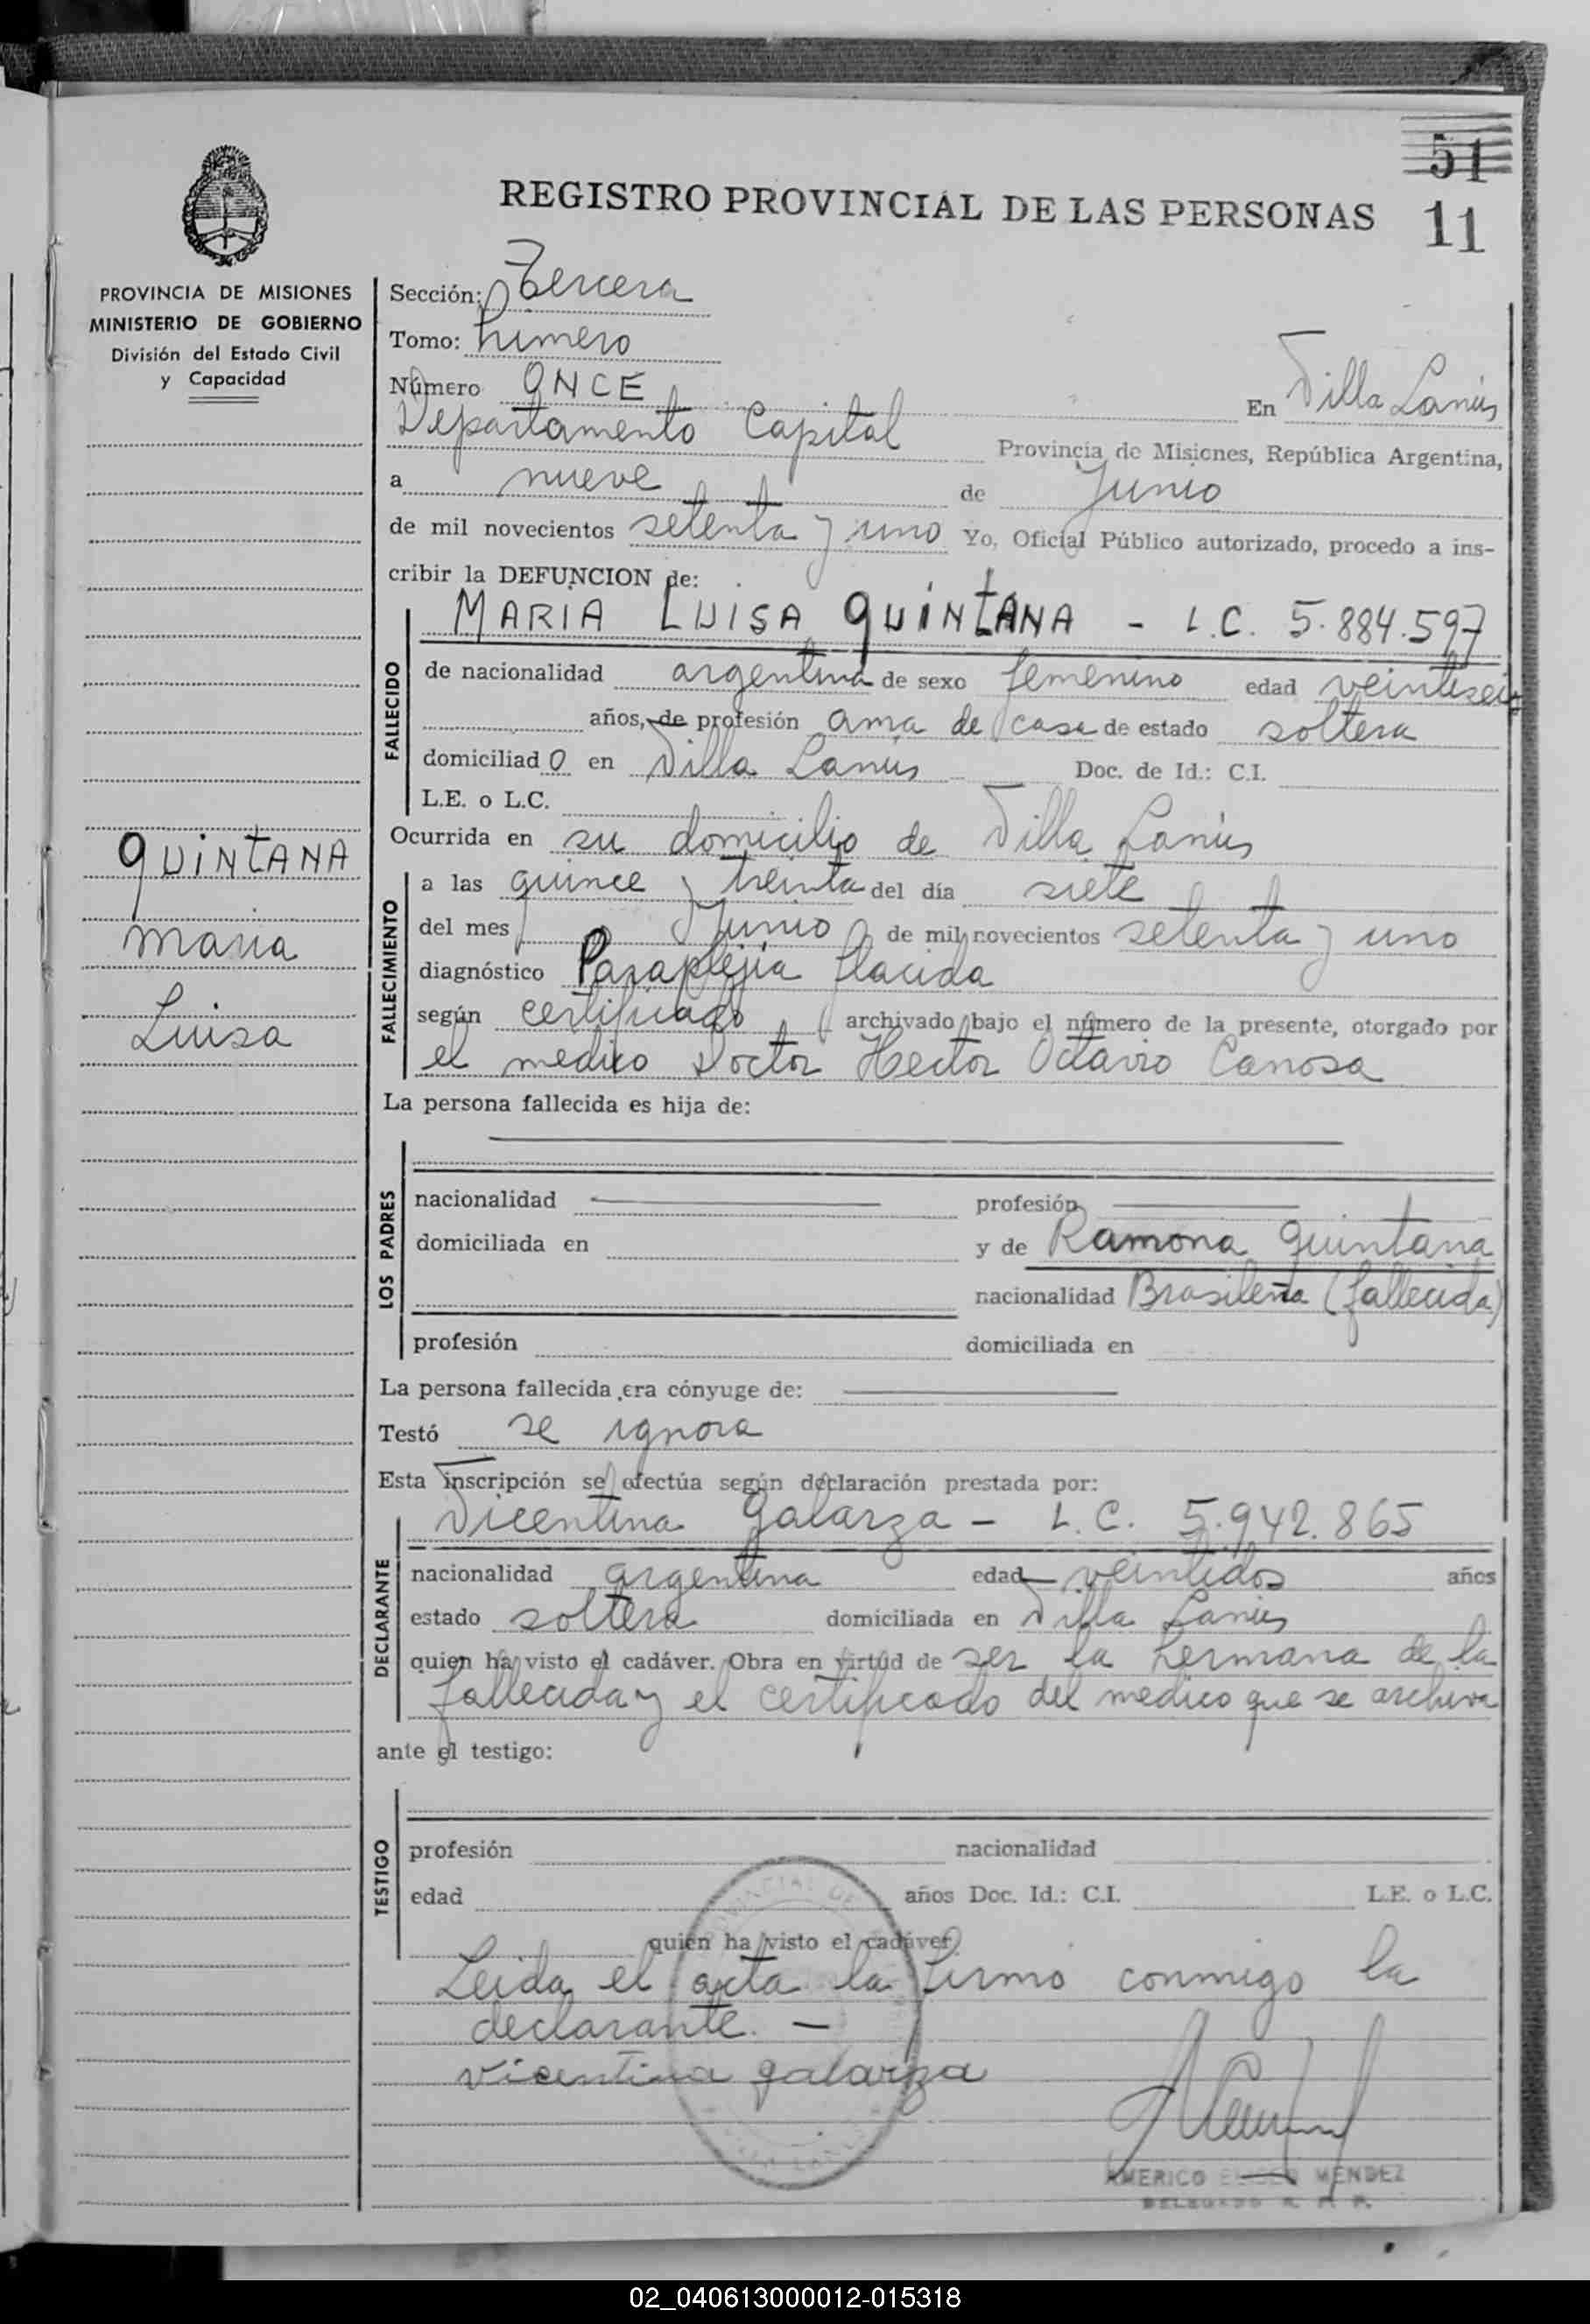 51
11
REGISTRO PROVINCIAL DE LAS PERSONAS
PROVINCIA DE MISIONES
MINISTERIO DE GOBIERNO
División del Estado Civil
y Capacidad
QUINTANA
Maria
Luisa
Sección: Tercera
Tomo: Primero
Número ONCE En Villa Lanús
Departamento Capital Provincia de Misiones, República Argentina,
a nueve de Junio
de mil novecientos setenta y uno Yo, Oficial Público autorizado, procedo a ins-
cribir la DEFUNCION de:
MARIA LUISA QUINTANA - L.C. 5.884.597
FALLECIDO
de nacionalidad argentina de sexo femenino edad veintiseis
años, de profesión ama de casa de estado soltera
domiciliado en Villa Lanús Doc. de Id.: C.I.
L.E. o L.C.
Ocurrida en su domicilio de Villa Lanús
FALLECIMIENTO
a las quince y treinta del día siete
del mes Junio de mil novecientos setenta y uno
diagnóstico Paraplejia flacida
según certificado archivado bajo el número de la presente, otorgado por
el medico Doctor Hector Octavio Canosa
La persona fallecida es hija de:
LOS PADRES
nacionalidad profesión
domiciliada en y de Ramona Quintana
nacionalidad Brasileña (fallecida)
profesión domiciliada en
La persona fallecida era cónyuge de:
Testó se ignora
Esta inscripción se efectúa según declaración prestada por:
DECLARANTE
Vicentina Galarza - L.C. 5.942.865
nacionalidad argentina edad veintidos años
estado soltera domiciliada en Villa Lanús
quien ha visto el cadáver. Obra en virtud de ser la hermana de la
fallecida y el certificado del medico que se archiva
ante el testigo:
TESTIGO
profesión nacionalidad
edad años Doc. Id.: C.I. L.E. o L.C.
quien ha visto el cadáver.
Leida el acta la firmo conmigo la
declarante. -
vicentina galarza
AMERICO MENDEZ
DELEGADO R. P. P.
02_040613000012-015318